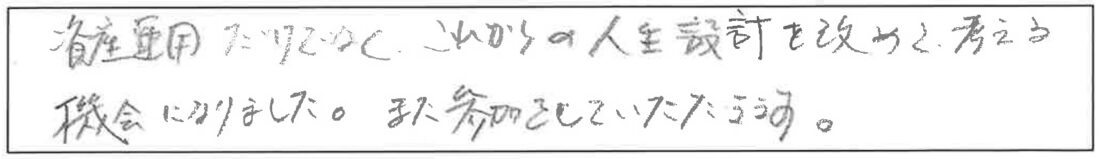 資産運用だけでなく、これからの人生設計を改めて、考える
機会になりました。また参加させていただきます。